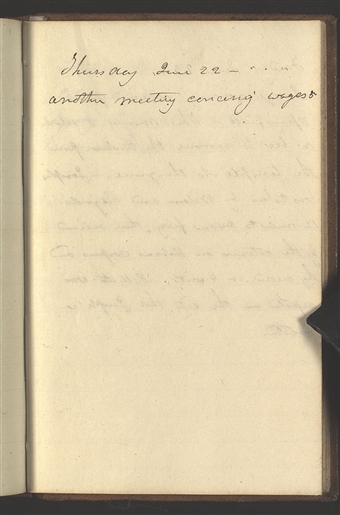 Thursday June 22 -
another meeting concering wages &